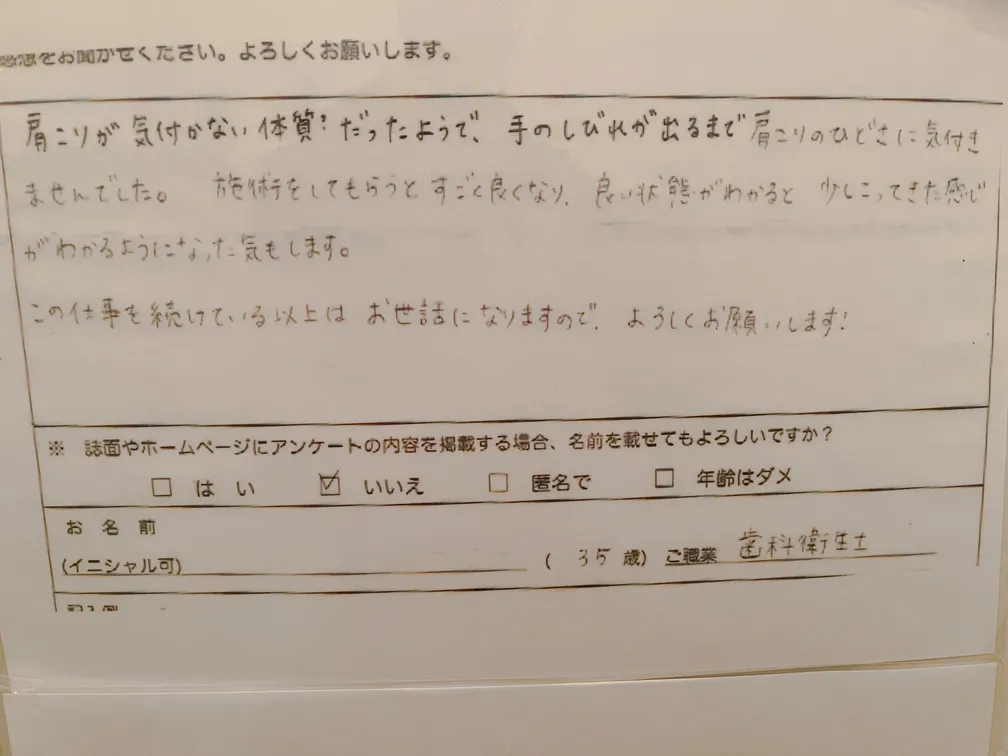 感想をお聞かせください。よろしくお願いします。
肩こりが気付かない体質?だったようで、手のしびれが出るまで肩こりのひどさに気付き
ませんでした。 施術をしてもらうとすごく良くなり、良い状態がわかると少しこってきた感じ
がわかるようになった気もします。
この仕事を続けている以上はお世話になりますので、よろしくお願いします!
※ 誌面やホームページにアンケートの内容を掲載する場合、名前を載せてもよろしいですか?
□ はい ☑ いいえ □ 匿名で □ 年齢はダメ
お名前
(イニシャル可) ( 35 歳) ご職業 歯科衛生士
記入例